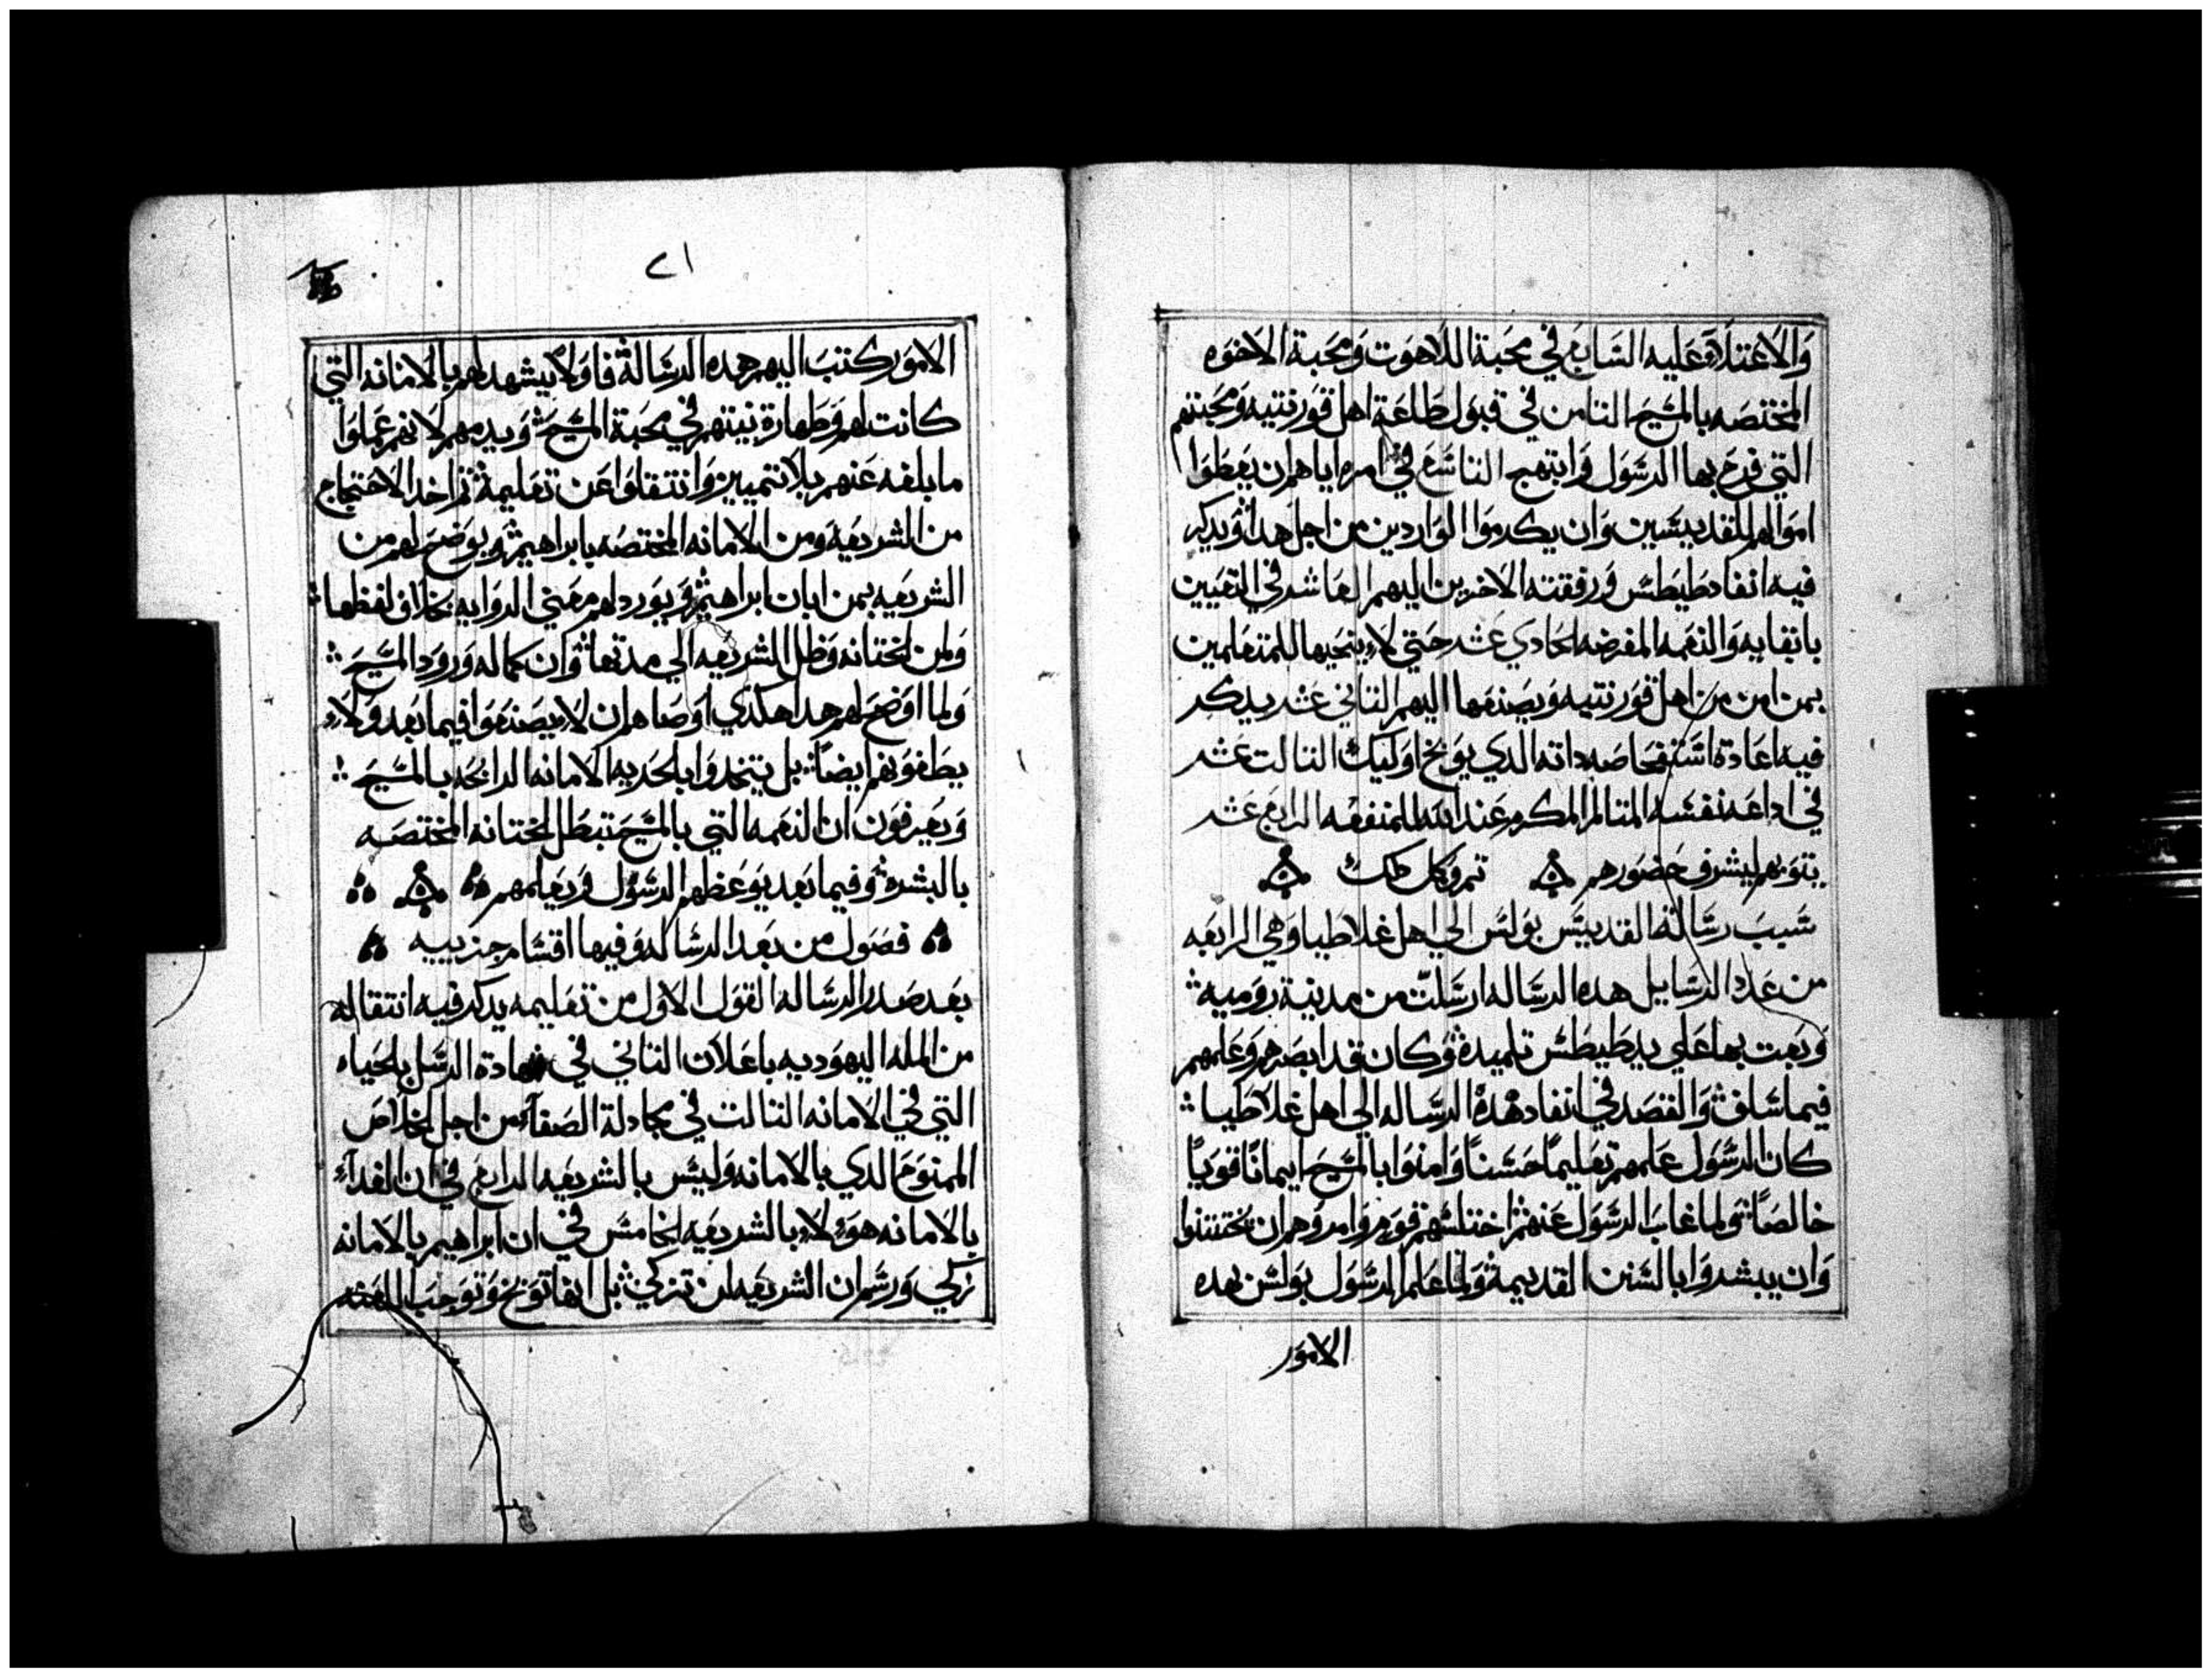 والاعتلاق عليه السابع في محبة اللاهوت ومحبة الاخوه
المختصه بالمسيح الثامن في قبول طاعة اهل قورنتيه ومحبتهم
التي فرح بها الرسول وابتهج التاسع في امره اياهم ان يعطوا
اموالهم للقديسين وان يكرموا الواردين من اجل هدا ويدكر
فيه انفاد طيطس ورفقته الاخرين اليهم العاشر في التعيين
بانقايه والنعمه المفرضه الحادي عشر حتي لا ينحيها للمتعلمين
بمن امن من اهل قورنتيه ويصنفها اليهم التاني عشر يدكر
فيه اعادة استفحاصه داته الدي يوبخ اوليك التالت عشر
في اداعه نفسه المتالم المكرم عند الله للمنفعه الرابع عشر
بتوبهم ليشرف حضورهم تم وكمل دلك
سبب رسالة القديس بولس الي اهل غلاطيا وهي الرابعه
من عدد الرسايل هده الرساله ارسلت من مدينة روميه
وبعت بها علي يد طيطس تلميده وكان قد ابصرهم وعلمهم
فيما سلف والقصد في انفاد هده الرساله الي اهل غلاطيا
كان الرسول علمهم تعليمًا حسنًا وامنوا بالمسيح ايمانًا قويًا
خالصًا ولما غاب الرسول عنهم اختلسهم قوم وامروهم ان يختتنوا
وان يبشروا بالسنن القديمة ولما علم الرسول بولس بهده
الامور
٢١
الامور كتب اليهم هده الرسالة فاولًا يشهد لهم بالامانه التي
كانت لهم وطهارة نيتهم في محبة المسيح ويدمهم لانهم عملوا
ما بلغه عنهم بلا تمييز وانتقلوا عن تعليمة تم اخد الاحتجاج
من الشريعه ومن الامانه المختصه بابراهيم ويوضح لهم من
الشريعه بمن ابان ابراهيم ويورد لهم معني الروايه بخلاف لفظها
ولمن الختانه وظل الشريعه الي مدتها وان كماله ورود المسيح
ولما اوضح لهم هدا هكدي اوصاهم ان لا يصنعوا فيما بعد ولا
يطغونهم ايضًا بل يتخدوا بالحريه الامانه الرابحه بالمسيح
ويعرفون ان النعمه التي بالمسيح تبطل الختانه المختصه
بالبشره وفيما بعد يوعظهم الرسول ويعلمهم
فصول من بعد الرساله وفيها اقسام جزييه
بعد صدر الرساله القول الاول من تعليمه يدكر فيه انتقاله
من المله اليهوديه باعلان التاني في شهادة الرسل بالحياه
التي في الامانه التالت في مجادلة الصفاء من اجل الخلاص
الممنوح الدي بالامانه وليس بالشريعه الرابع في ان الفداء
بالامانه هو لا بالشريعه الخامس في ان ابراهيم بالامانه
تزكي ورسم ان الشريعه لن تزكي بل انها توبخ وتوجب اللعنه